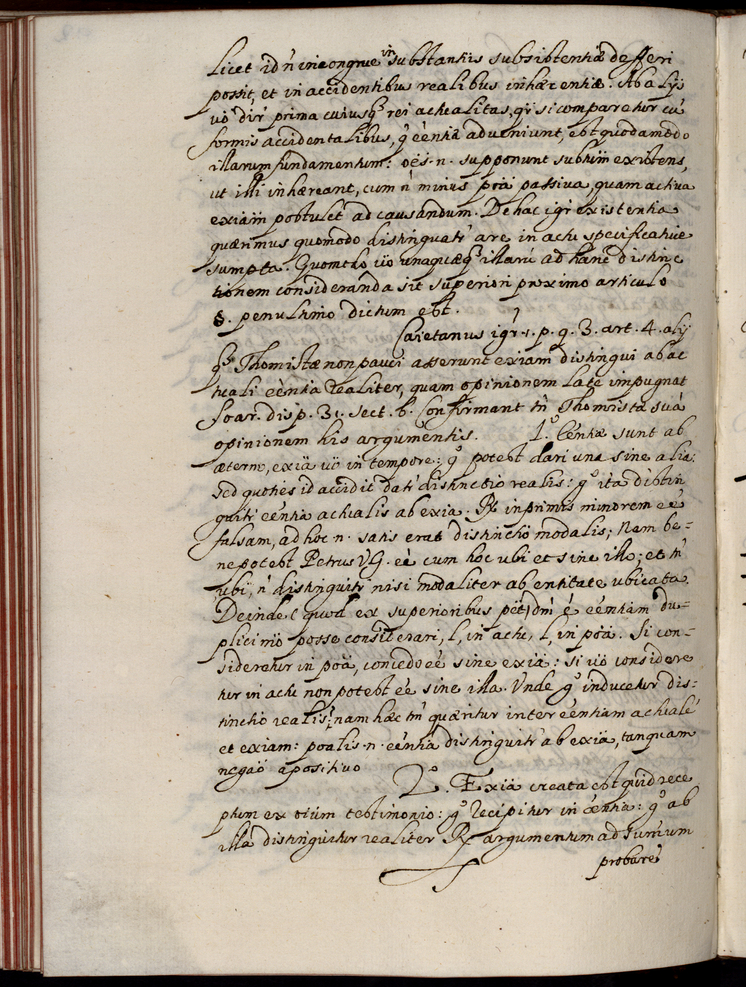 Licet id ñ incongrue in substantiis subsistentiæ defferi
possit, et in accidentibus realibus inhærentiæ. Ab alijs
vo dir prima cuiusq rei actualitas, qr si comparetur cũ
formis accidentalibus, q eéntiæ adveniunt, est quodamodo
illarum fundamentum: oẽs .n. supponunt subtum existens,
ut illi inhæreant, cum ñ minus poã passiva, quam activa
exiam postulet ad causandum. De hac igr existentia
quærimus quomodo distinguatr a re in actu specificative
sumpta. Quomodo vo unaquæq illarũ ad hanc distinc
tionem consideranda sit superiori proximo articulo
§. penultimo dictum est.
Caietanus igr 1. p. q. 3. art. 4. alij
q Thomistæ non pauci asserunt exiam distingui ab ac
tuali eéntia realiter, quam opinionem late impugnat
Soar. disp. 31. sect. 6. Confirmant tñ Thomistæ suã
opinionem his argumentis. 1.º Eéntiæ sunt ab
æterno, exiã vo in tempore: gº potest dari una sine alia:
sed quoties id accidit datr distinctio realis: gº ita distin
guitr eéntia actualis ab exia. R. inprimis minorem eé
falsam, ad hoc .n. satis erat distinctio modalis; Nam be-
ne potest Petrus V.G. eé cum hoc ubi et sine illo; et tñ
ubi, ñ distinguitr nisi modaliter ab entitate ubicata.
Deinde (quod ex superioribus pet) dm é eéntiam du-
plici mõ posse considerari, l, in actu, l, in poã. Si con-
sideretur in poã, concedo eé sine exia: si vo considere
tur in actu non potest eé sine illa. Unde gº inducetur dis-
tinctio realis; nam hæc tñ quæritur inter eéntiam actualé
et exiam: poalis .n. eéntia distinguitr ab exia, tanquam
negaõ a positivo
2.º Exiã creata est quid rece
ptum ex oium testimonio: gº recipitur in eéntia: gº ab
illa distinguitur realiter R. argumentum ad summum
probare